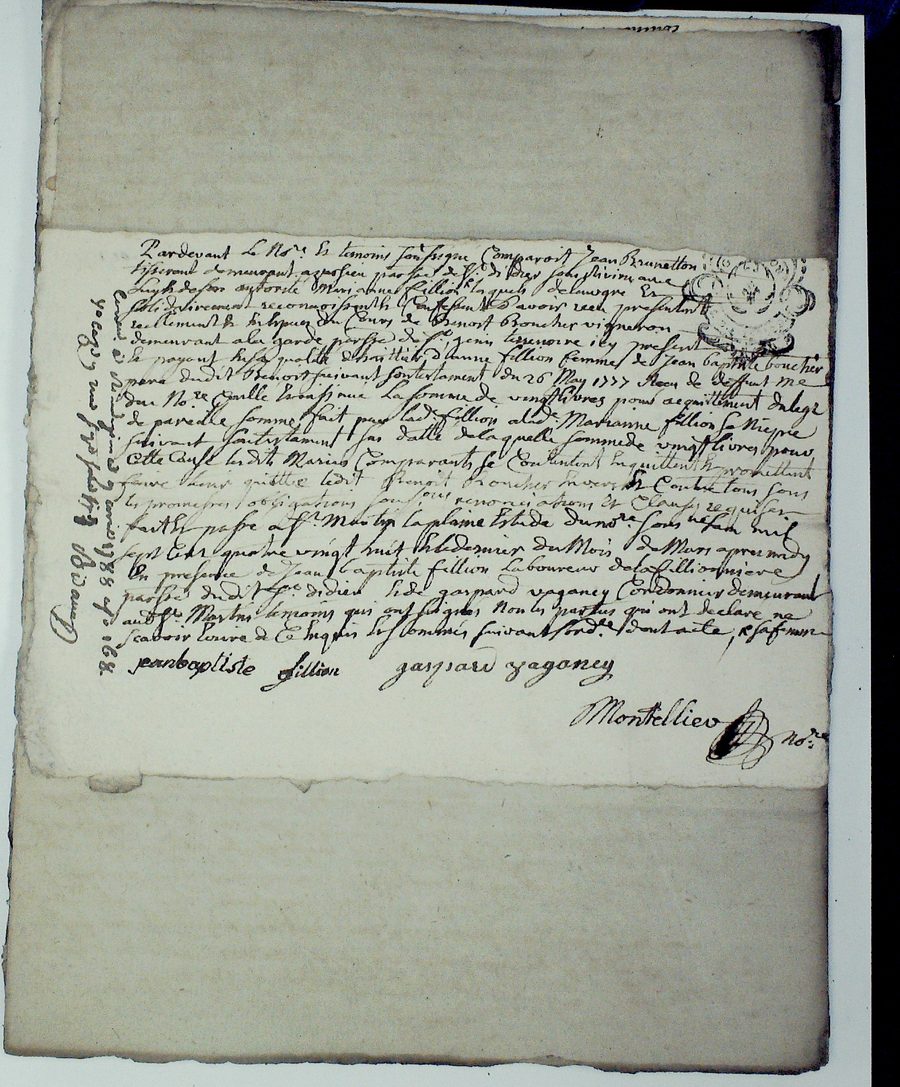 Pardevant Le No.re & temoins sousigne Comparoit Jean Brunetton
tisserant demeurant paroisse de St. didier sous riverie
de son autorité Marianne fillion laquelle delauogre Et
solidairement reconnoissent & Confessent avoir receu presentemt
reellement & du Cours de Benoit Boucher vigneron
demeurant a la garde parsse de St. genis terrenoire icy present
& payant En sa qualité d'heritier d'anne fillion femme de Jean baptiste boucher
pere dudit Benoit suivant son testament du 26 May 1777 Receu de deffunt me
No.re La somme de vingt livres pour acquittement du legt
de pareille somme fait par lade. fillion a lade. Marianne fillion sa Niepce
suivant son testament sus datte de laquelle somme de vingt livres pour
Cette Cause lesdits Maries Comparants se Contentent En quittent & promettent
faire tenir quitte ledit Benoit Boucher Envers & Contre tous sous
les promesses obligations soumissions renonciations & Clauses requises
fait & passe a St. Martin la plaine Etude du no.re sous.ne l'an mil
sept Cent quatre vingt huit & le dernier du Mois de Mars apres midy
En presence de Jean baptiste fillion Laboureur de la fillionniere
parsse dudit St. didier & de gaspard vaganey Cordonnier demeurant
audt. St. Martin temoins qui ont signes Non les parties qui ont declare ne
scavoir Ecrire de Ce Enquis & sommés suivant l'ord.ce dont acte, & sa femme
jean baptiste fillion gaspard vaganey
Montellier No.re
avril 1788 fo. 168